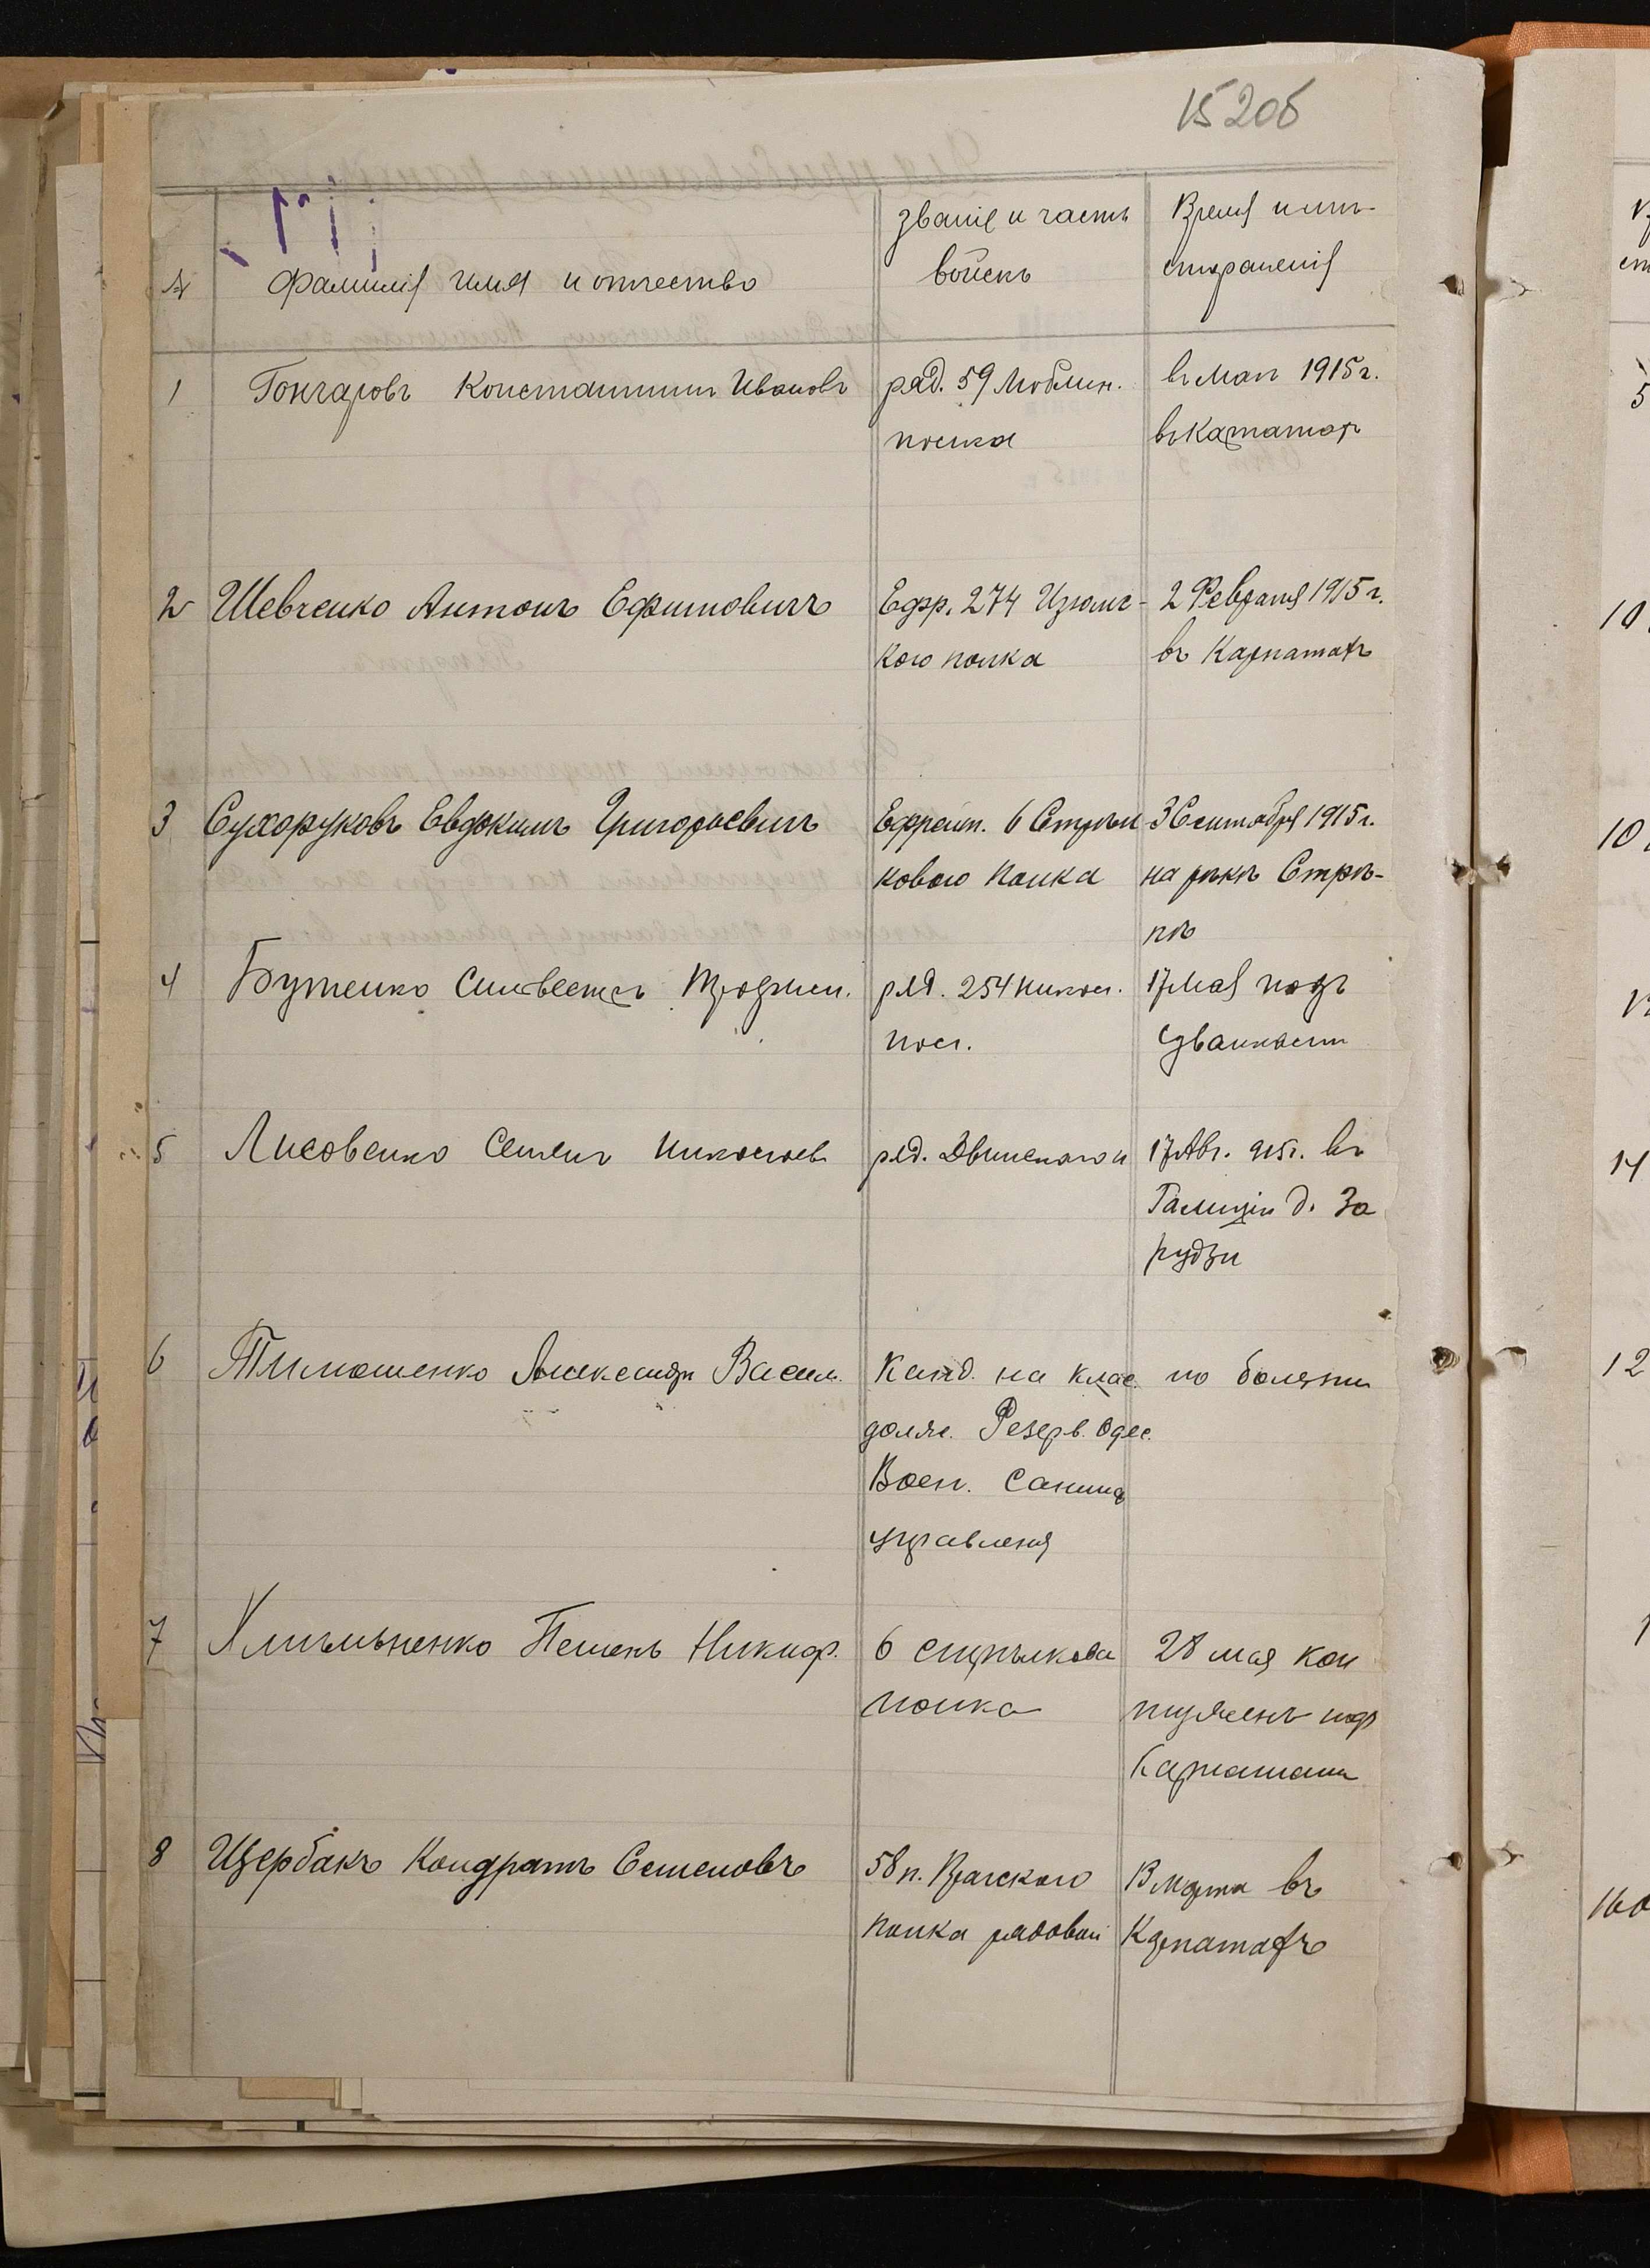 15206
№ Фамилія имя и отчество
званіе и часть
войскъ
Время и мѣ-
сто раненія
1 Гончаровъ Константинъ Ивановъ
ряд. 59 Люблин.
полка
въ Маѣ 1915 г.
въ Карпатахъ
2 Шевченко Антонъ Ефимовичъ
Ефр. 274 Изюмс-
кого полка
2 Февраля 1915 г.
въ Карпатахъ
3 Сухоруковъ Евдокимъ Григорьевичъ
Ефрейт. 6 Стрѣл
кового Полка
3 Сентября 1915 г.
на рѣкѣ Стры-
пѣ
4 Бутенко Сильвестръ
ряд. 254 Никол.
пол.
17 Мая подъ
5 Лисовенко Семенъ Николаев
ряд. Двинскаго п
17 Авг. 915 г. въ
Галиціи д. За
рудзи
6 Тимошенко Александръ Васил.
Канд. на клас.
долж. Резерв. Одес.
Воен. Санит
управленія
по болезни
7 Хмильненко Никиф.
6 стрѣлкова
полка
28 мая кон
тужен подъ
Карпатами
8 Щербакъ Кондратъ Семеновъ
58 п. Прагского
полка рядовой
В марта въ
Карпатахъ